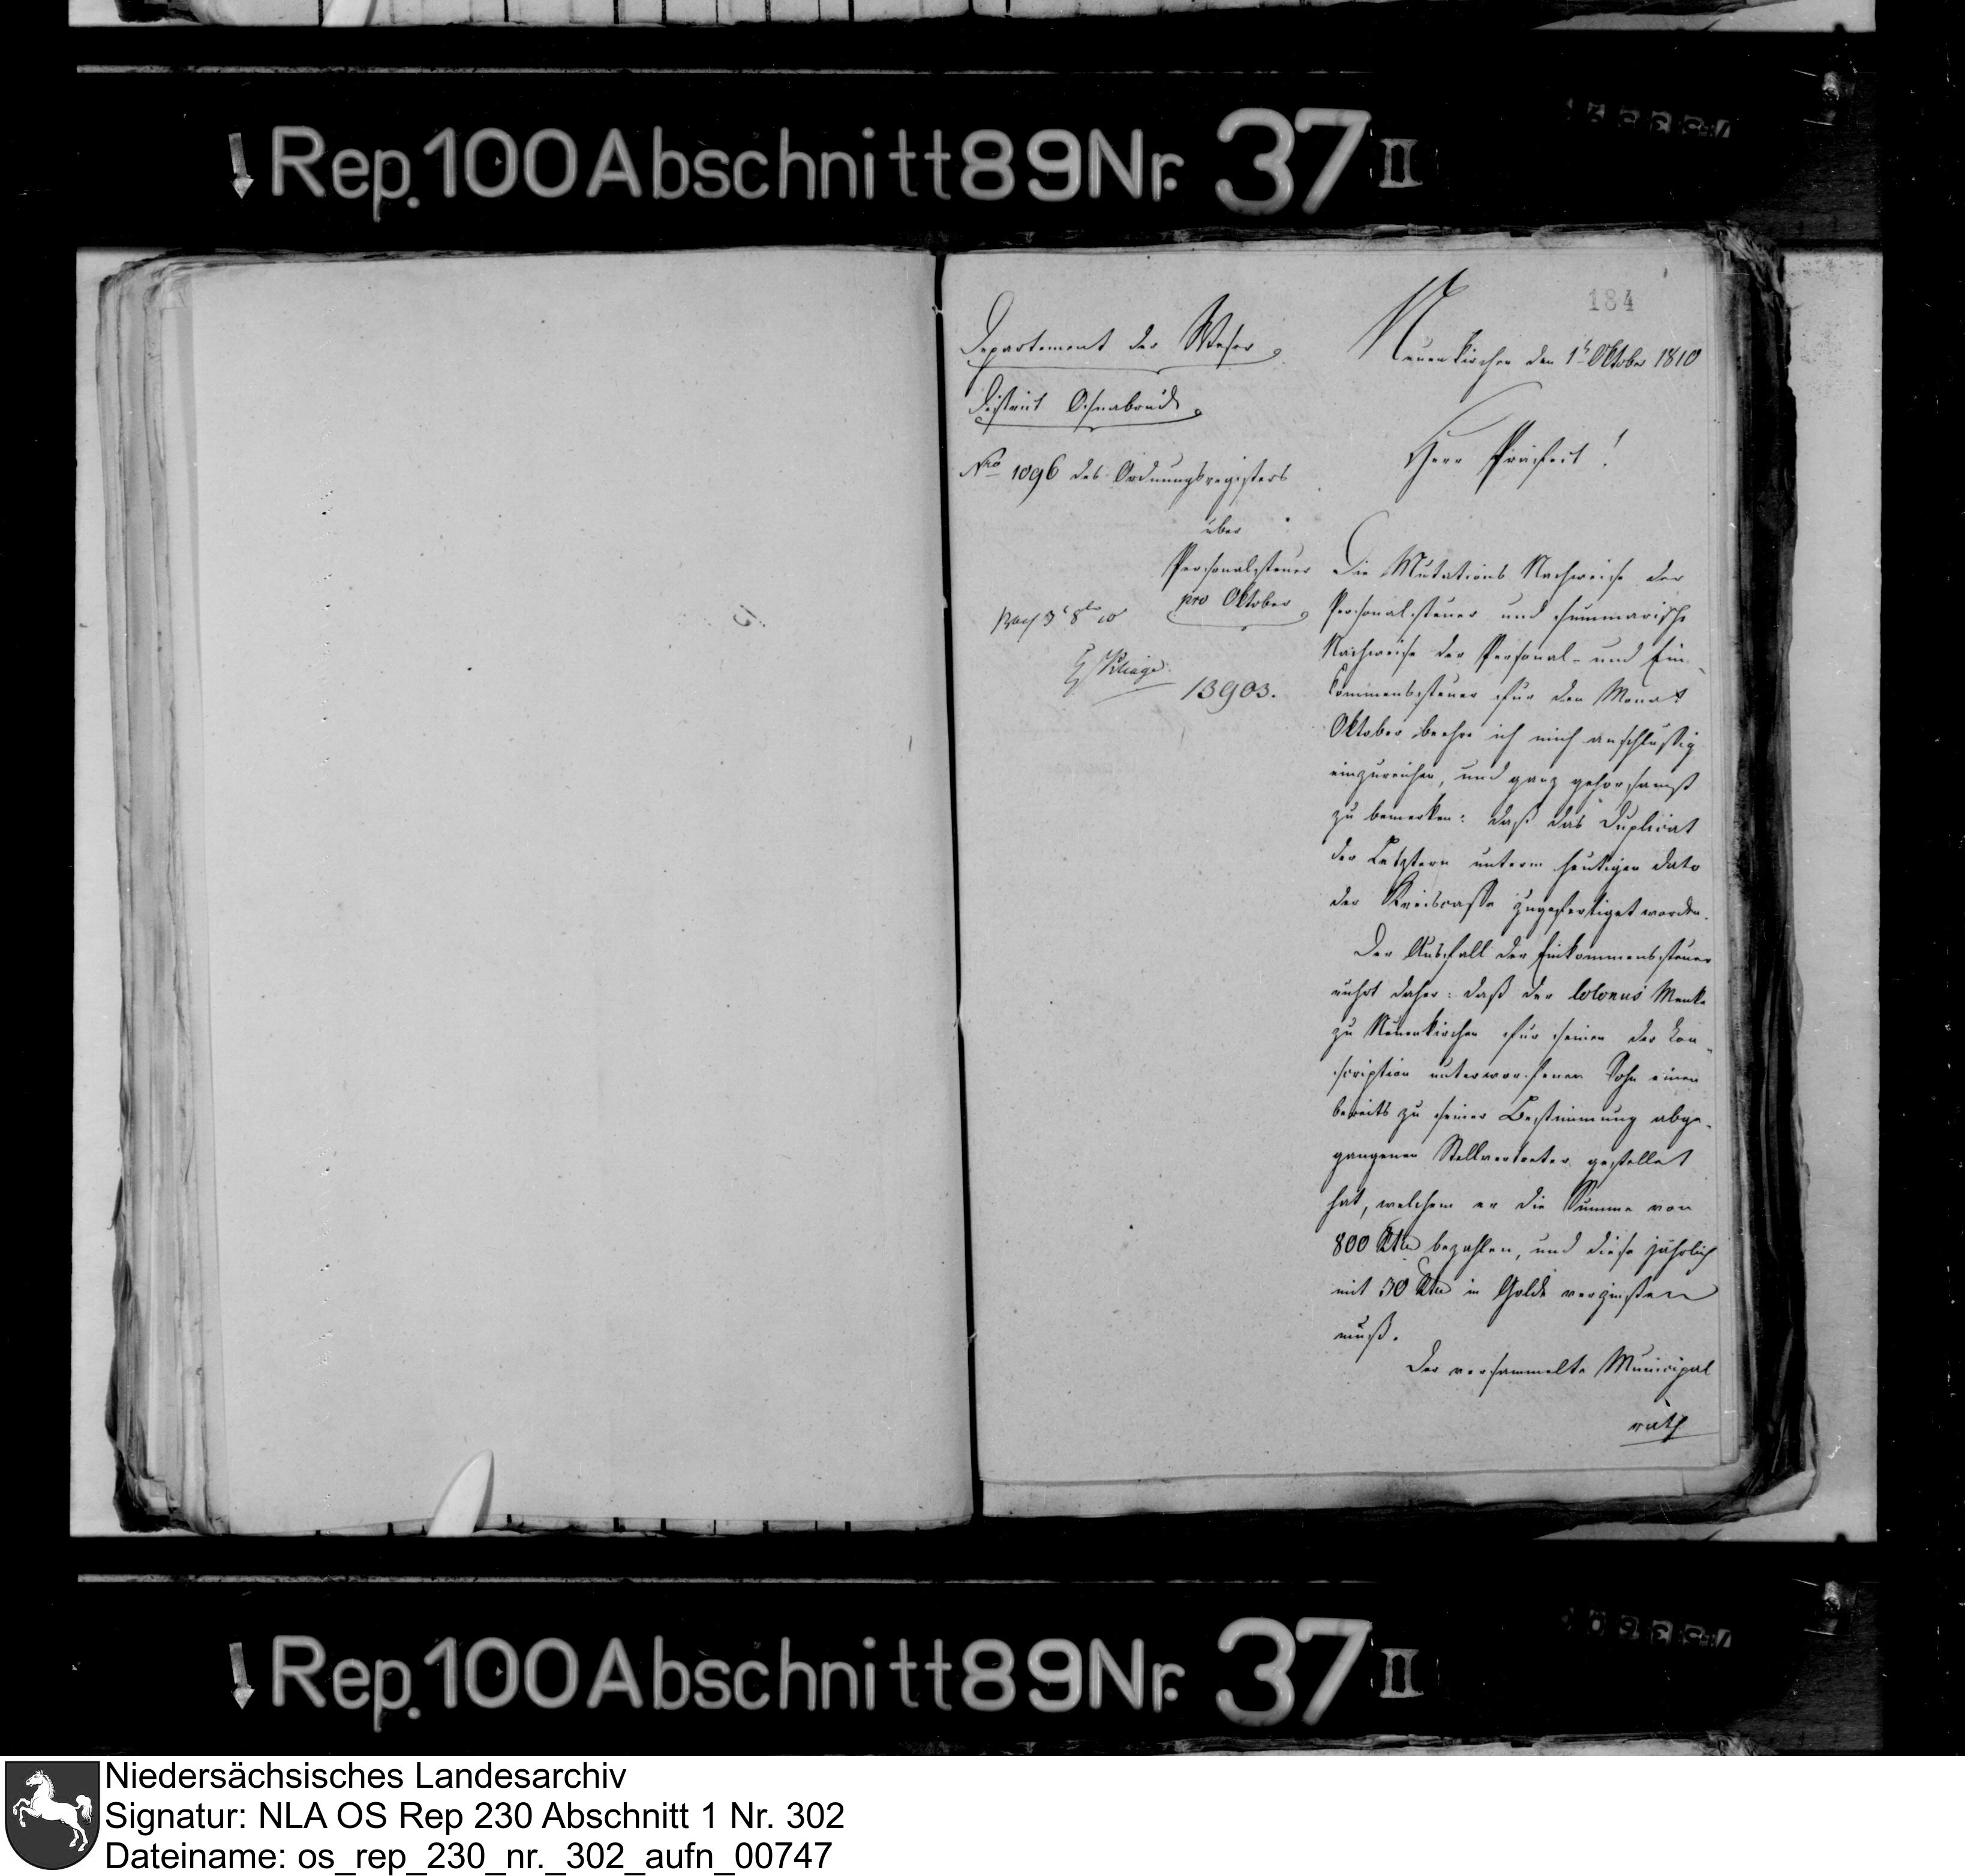 Rep. 100 Abschnitt 89 Nr. 37 II
184
Departement der Weser
District Osnabrück
Nro 1096 des Ordnungsregisters
über
Personalsteuer
pro Oktober
13903.
Neuenkirchen den 1t Oktober 1810
Herr Präfect!
Die Mutations Nachweise der
Personalsteuer und summarische
Nachweise der Personal- und Ein-
kommenssteuer für den Monat
Oktober beehre ich mich anschlußig
einzureichen, und ganz gehorsamst
zu bemerken: daß das Duplicat
der Letztern unterm heutigen dato
der Kreiscasse zugefertiget worden.
Der Ausfall der Einkommenssteuer
ruhrt daher: daß der Colonus Menke
zu Neuenkirchen für seinen der Con-
scription unterworfenen Sohn einen
bereits zu seiner Bestimmung abge-
gangenen Stellvertreter gestellet
hat, welchem er die Summe von
800 Rtlr bezahlen, und diese jährlich
mit 30 Rtlr in Golde verzinsten
muß.
Der versammelte Municipal
rath
Rep. 100 Abschnitt 89 Nr. 37 II
Niedersächsisches Landesarchiv
Signatur: NLA OS Rep 230 Abschnitt 1 Nr. 302
Dateiname: os_rep_230_nr._302_aufn_00747